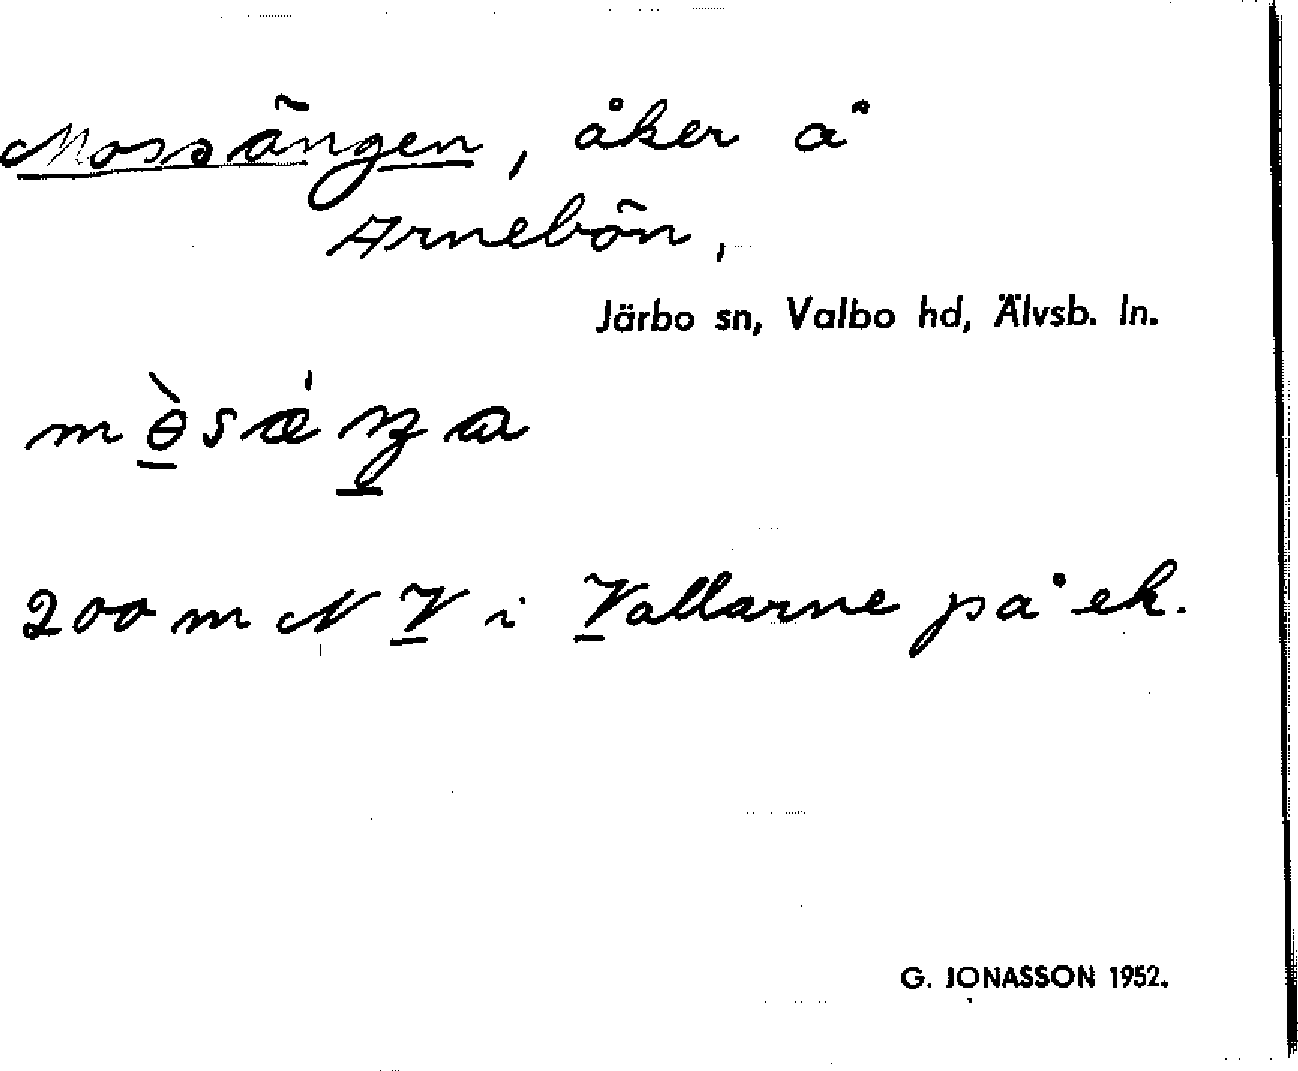 Mossängen, åker å
Arnebön,
Järbo sn, Valbo hd, Älvsb. ln.
200 m N V i Vallarne på ek.
G. JONASSON 1952.